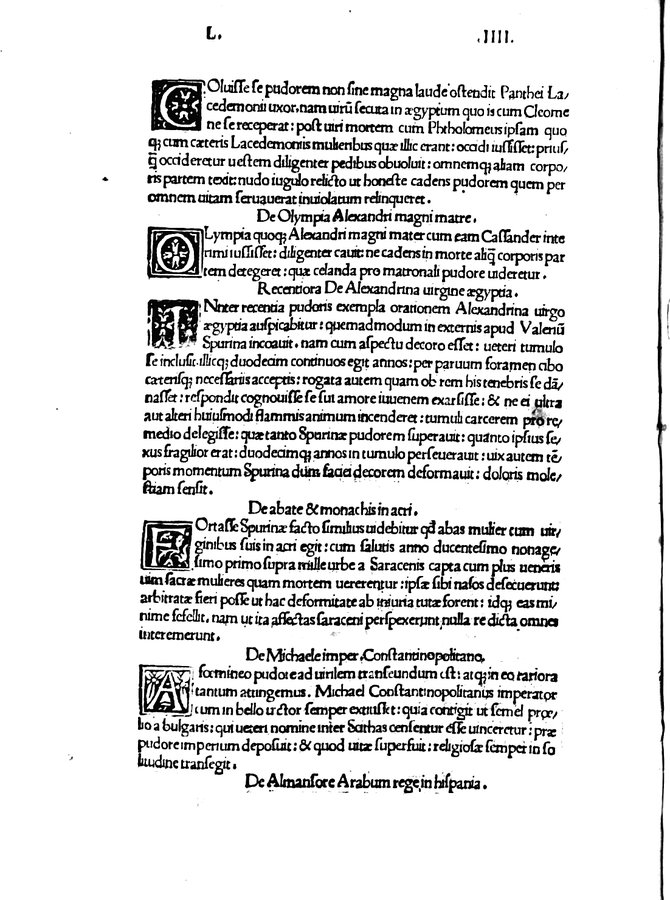 L. .IIII.
COluisse se pudorem non sine magna laude ostendit Panthei La/
cedemonii uxor, nam uirū secuta in ægyptum quo is cum Cleome
ne se receperat: post uiri mortem cum Phtholomeus ipsam quo
q; cum cæteris Lacedemoniis mulieribus quæ illic erant: occidi iussisset: prius/
q̄ occideretur uestem diligenter pedibus obuoluit: omnemq; aliam corpo/
ris partem texit: nudo iugulo relicto ut honeste cadens pudorem quem per
omnem uitam seruauerat inuiolatum relinqueret.
De Olympia Alexandri magni matre.
OLympia quoq; Alexandri magni mater cum eam Cassander inte
rimi iussisset: diligenter cauit: ne cadens in morte aliq̄ corporis par
tem detegeret: quæ celanda pro matronali pudore uideretur.
Recentiora De Alexandrina uirgine ægyptia.
INter recentia pudoris exempla orationem Alexandrina uirgo
ægyptia auspicabitur: quemadmodum in externis apud Valeriū
Spurina incoauit. nam cum aspectu decoro esset: ueteri tumulo
se inclusit. illicq; duodecim continuos egit annos: per paruum foramen cibo
caterisq; necessariis acceptis: rogata autem quam ob rem his tenebris se dā/
nasset: respondit cognouisse se sui amore iuuenem exarsisse: & ne ei ultra
aut alteri huiusmodi flammis animum incenderet: tumuli carcerem pro re/
medio delegisse: quæ tanto Spurinæ pudorem superauit: quanto ipsius se/
xus fragilior erat: duodecimq; annos in tumulo perseuerauit: uix autem tē/
poris momentum Spurina dum faciei decorem deformauit: doloris mole/
stiam sensit.
De abate & monachis in acri.
FOrtasse Spurinæ facto similius uidebitur qđ abas mulier cum uir/
ginibus suis in acri egit: cum salutis anno ducentesimo nonage/
simo primo supra mille urbe a Saracenis capta cum plus ueneris
uim sacræ mulieres quam mortem uererentur: ipsæ sibi nasos desecuerunt
arbitratæ fieri posse ut hac deformitate ab iniuria tutæ forent: idq; eas mi/
nime fefellit. nam ut ita affectas saraceni perspexerunt nulla re dicta omnes
interemerunt.
De Michaele imper. Constantinopolitano.
A fœmineo pudore ad uirilem transeundum est: atq; in eo rariora
tantum attingemus. Michael Constantinopolitanus imperator
cum in bello uictor semper extitisset: quia contigit ut semel prœ/
lio a bulgaris: qui ueteri nomine inter Scithas censentur esse uinceretur: præ
pudore imperium deposuit: & quod uitæ superfuit: religiosæ semper in so
litudine transegit.
De Almansore Arabum rege in hispania.